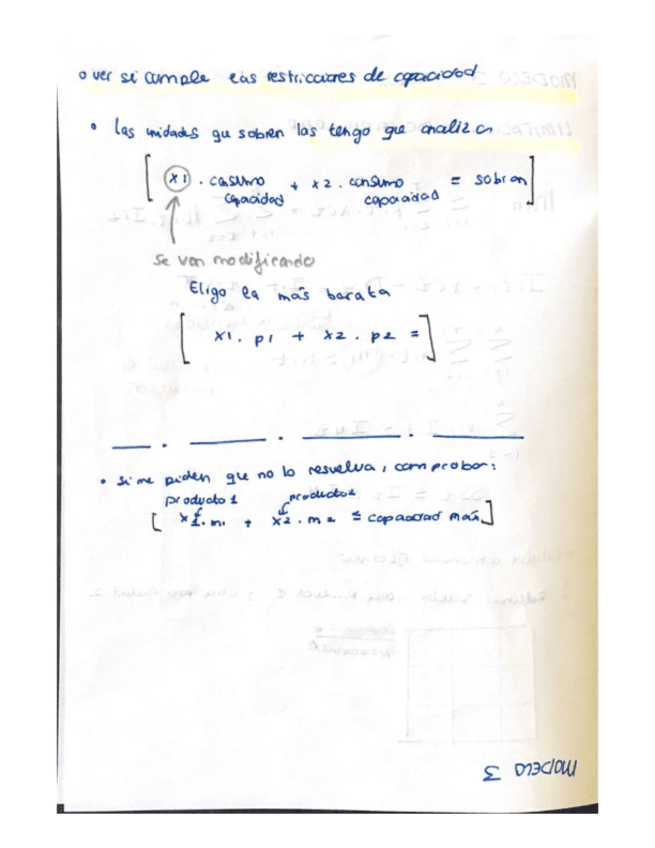 o ver si cumple las restricciones de capacidad
• Las unidades qu sobren las tengo que analizar
[ x1 . consumo capacidad + x2 . consumo capacidad = sobran ]
se van modificando
Eligo la más barata
[ x1. p1 + x2. p2 = ]
• si me piden que no lo resuelva, comprobar:
producto 1 producto 2
[ x1. m1 + x2. m2 ≤ capacidad max ]
MODELO 3